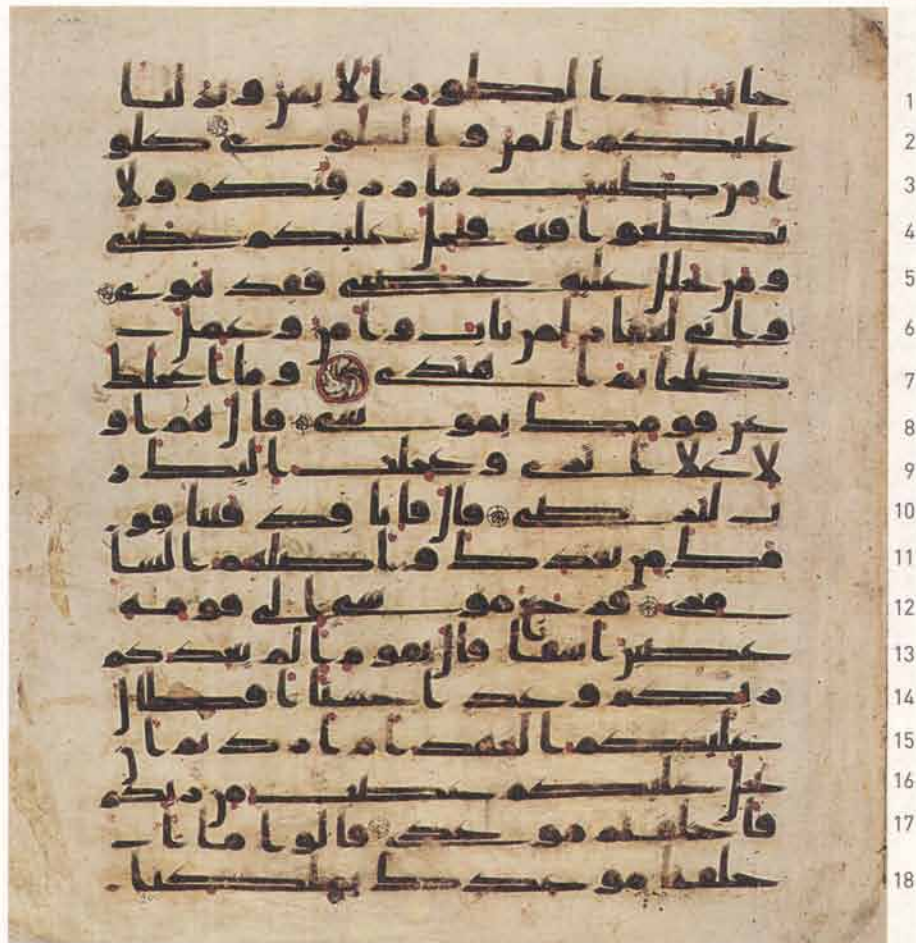 جانب الطور الايمن ونزلنا 1
عليكم المن والسلوى كلو 2
ا من طيبت ما رزقنكم ولا 3
تطغوا فيه فيحل عليكم غضبي 4
ومن يحلل عليه غضبي فقد هوى 5
واني لغفار لمن تاب وامن وعمل 6
صلحا ثم اهتدى وما اعجلك 7
عن قومك يموسى قال هم او 8
لا علا اثرى وعجلت اليك ر 9
ب لترضى قال فانا قد فتنا قو 10
مك من بعدك واضلهم السا 11
مرى فرجع موسى الى قومه 12
غضبن اسفا قال يقوم الم يعدكم 13
ربكم وعدا حسنا افطال 14
عليكم العهد ام اردتم ان 15
يحل عليكم غضب من ربكم 16
فاخلفتم موعدى قالوا ما ا 17
خلفنا موعدك بملكنا 18